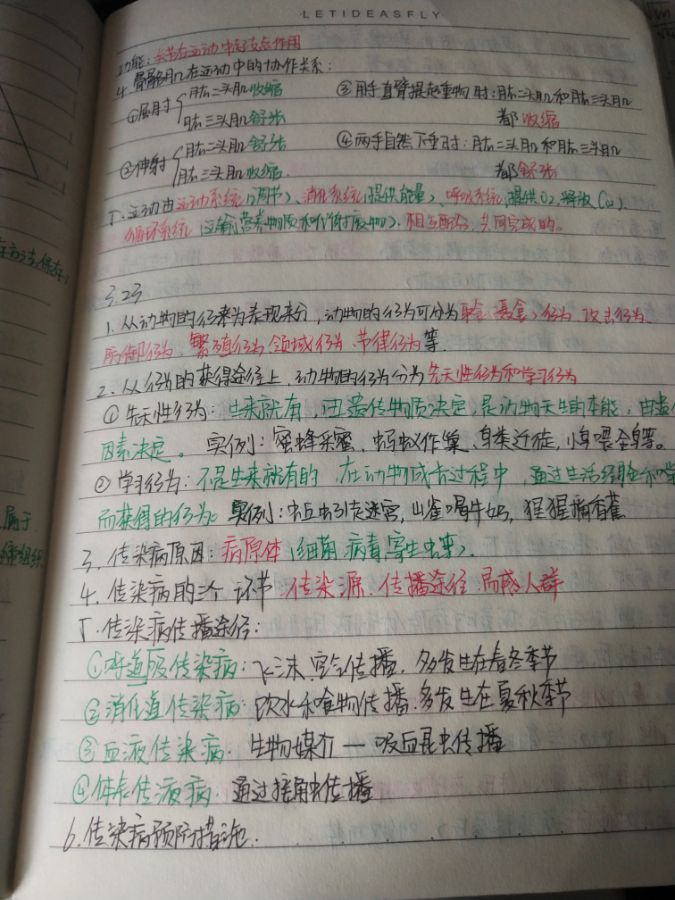 LETIDEASFLY
功能：关节在运动中起支点作用
4. 骨骼肌在运动中的协作关系：
①屈肘 肱二头肌收缩 ③用手直臂提起重物时：肱二头肌和肱三头肌
肱三头肌舒张 都收缩
②伸肘 肱二头肌舒张 ④两手自然下垂时：肱二头肌和肱三头肌
肱三头肌收缩 都舒张
5. 运动由运动系统(调节)、消化系统(提供能量)、呼吸系统(提供O2,释放CO2)
循环系统(运输营养物质和代谢废物)、相互配合,共同完成的。
3.23
1. 从动物的行为表现来分，动物的行为可分为 摄食行为、攻击行为、
防御行为、繁殖行为 领域行为、节律行为等
2. 从行为的获得途径上，动物的行为分为先天性行为和学习行为
①先天性行为：生来就有，由遗传物质决定，是动物天生的本能，由遗
因素决定。实例：蜜蜂采蜜，蚂蚁作巢，鸟类迁徙，小鸟喂金鱼等。
②学习行为：不是生来就有的，在动物成长过程中，通过生活经验和学
而获得的行为。实例：蚯蚓走迷宫，山雀喝牛奶，猩猩摘香蕉
3. 传染病原因：病原体(细菌 病毒 寄生虫等)
4. 传染病的3个环节：传染源、传播途径 易感人群
5. 传染病传播途径：
①呼道吸传染病：飞沫、空气传播，多发生在春冬季节
②消化道传染病：饮水和食物传播，多发生在夏秋季节
③血液传染病：生物媒介一吸血昆虫传播
④体表传染病：通过接触传播
6. 传染病预防措施：